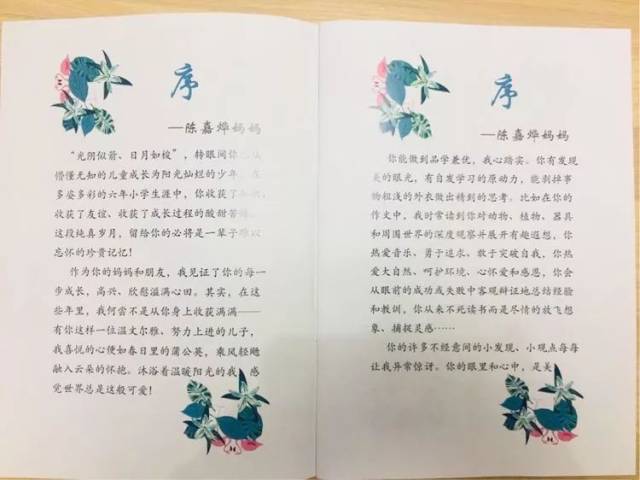 序
—陈嘉烨妈妈
“光阴似箭、日月如梭”，转眼间你
懵懂无知的儿童成长为阳光灿烂的少年。在
多姿多彩的六年小学生涯中，你收获了
收获了友谊、收获了成长过程的酸甜苦
这段纯真岁月，留给你的必将是一辈子难以
忘怀的珍贵记忆！
作为你的妈妈和朋友，我见证了你的每一
步成长，高兴、欣慰溢满心田。其实，在这
些年里，我何尝不是从你身上收获满满——
有你这样一位温文尔雅、努力上进的儿子，
我喜悦的心便如春日里的蒲公英，乘风轻飏
融入云朵的怀抱。沐浴着温暖阳光的我，感
觉世界总是这般可爱！
序
—陈嘉烨妈妈
你能做到品学兼优，我心踏实。你有发现
美的眼光，有自发学习的原动力，能剥掉事
物粗浅的外衣做出精到的思考。比如在你的
作文中，我时常读到你对动物、植物、器具
和周围世界的深度观察并展开有趣遐想，你
热爱音乐、勇于追求、敢于突破自我，你热
爱大自然、呵护环境、心怀爱和感恩，你会
从眼前的成功或失败中客观辩证地总结经验
和教训，你从来不死读书而是尽情的放飞想
象、捕捉灵感……
你的许多不经意间的小发现、小观点每每
让我异常惊讶。你的眼里和心中，是美